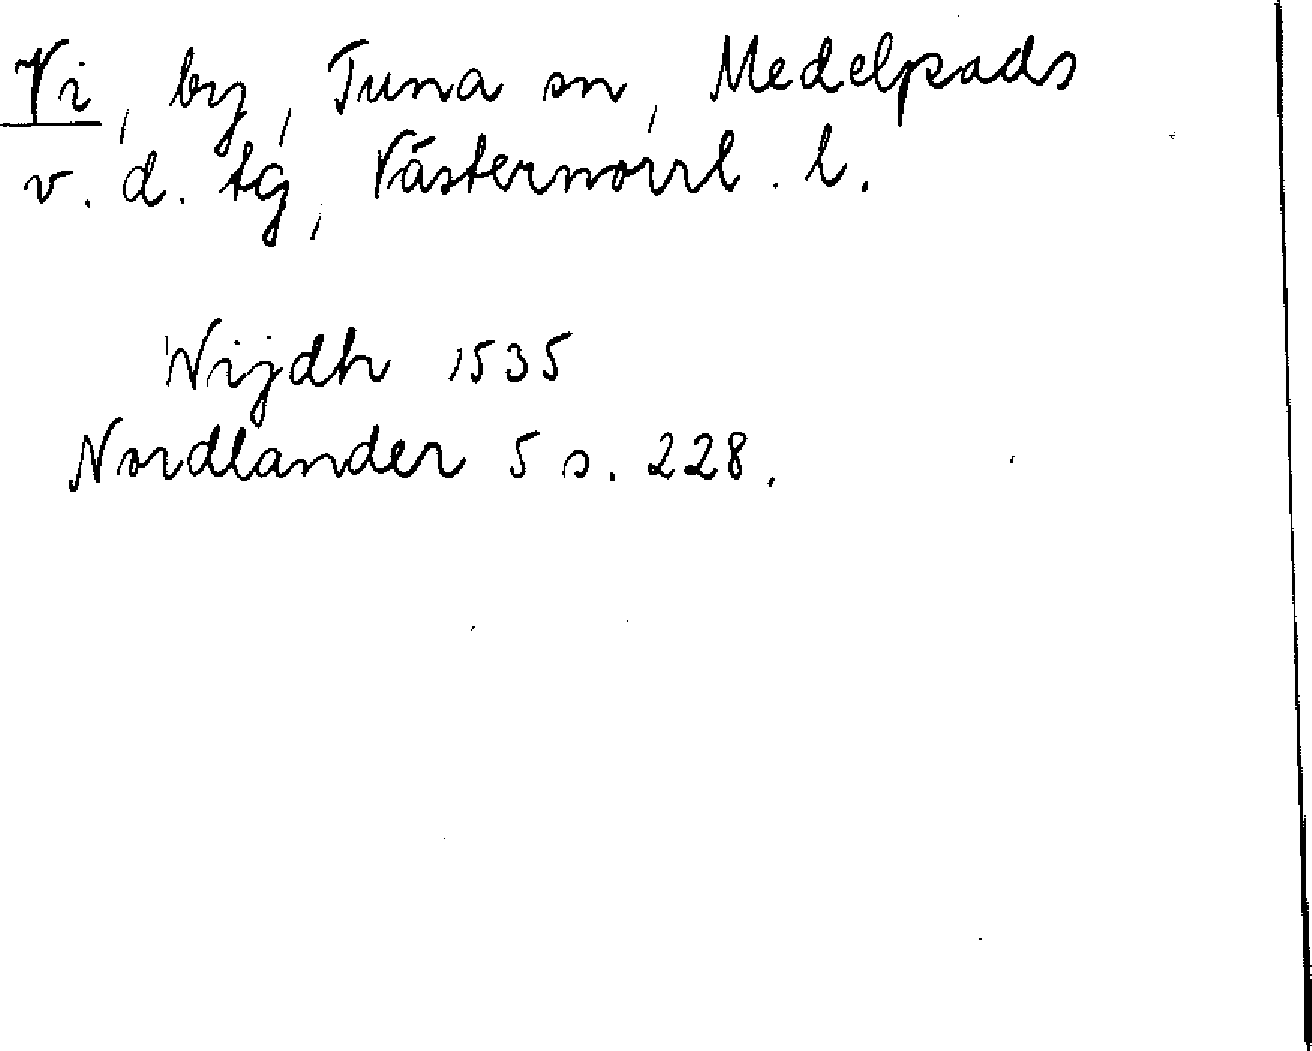 Vi, by, Tuna sn, Medelpads
v. d. tg, Västernorrl. l.
Wijdh 1535
Nordlander 5 s. 228.